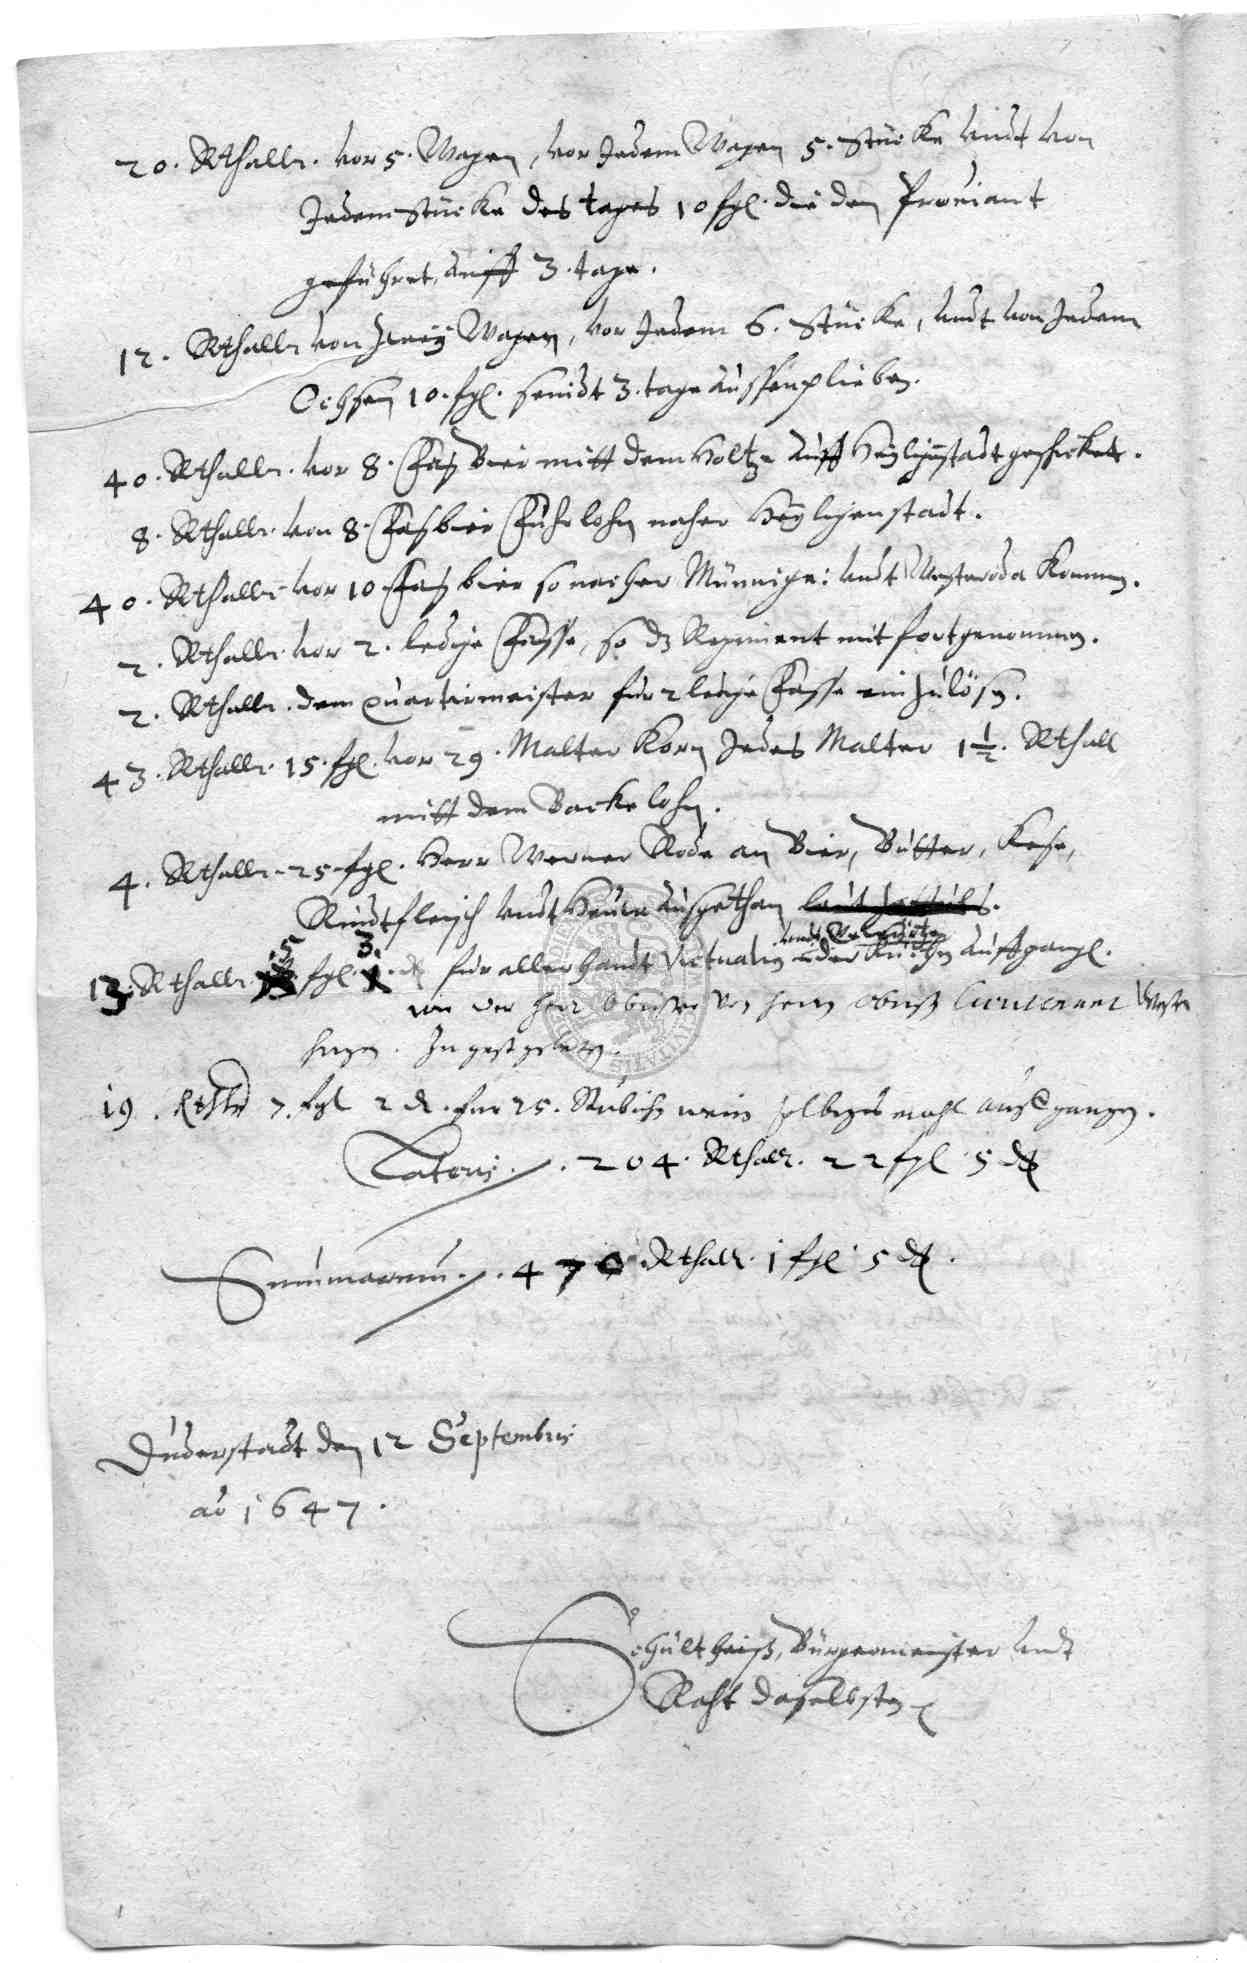 20. Rthallr. vor 5. Wagen, vor Jedem Wagen 5. Stücke undt von
Jedem Stücke des tages 10 fgl. die den Proviant
geführet, auff 3. tage.
12. Rthallr von zweij Wagen, vor Jedem 6. Stücke, undt von Jedem
Ochsen 10. fgl. seindt 3. tage aussenplieben.
40. Rthallr. vor 8. Faß Bier mitt dem Holtze auff Heyligenstadt geschicket.
8. Rthallr. von 8. Faß bier Fuhrlohn naher Heyligenstadt.
40. Rthallr vor 10 Faß bier so nacher Münnige: undt Westeroda kommen.
2. Rthallr vor 2. ledige Fasse, so dz Regiment mit fortgenommen.
2. Rthallr. dem quartirmeister für 2 ledige Fasse einzulösen.
43. Rthallr. 15. fgl. vor 29. Malter Korn Jedes Malter 1 1/2. Rthall
mitt dem Backelohn.
4. Rthallr. 25 fgl. Herr Werner Rode an Bier, Butter, Kese,
Rindtfleisch undt Heuw außgethan laut
undt
13. Rthallr. 5 fgl. 3 für aller handt Victualien der Küchen auffgangl.
wie der Herr Obrister von Herrn Obrist Lieutenant Westen
hagen. Zu gast gebeten.
19. Rthlr 7. fgl 2 d. für 25. Stübich wein selbiges mahl aufgangen.
Lateris. 204. Rthalr. 22 fgl 5 d
Summarum. 470. Rthalr. 1 fgl 5 d.
Duderstadt den 12 Septembris
ao 1647.
Schultheiß, Bürgermeister undt
Raht daselbsten